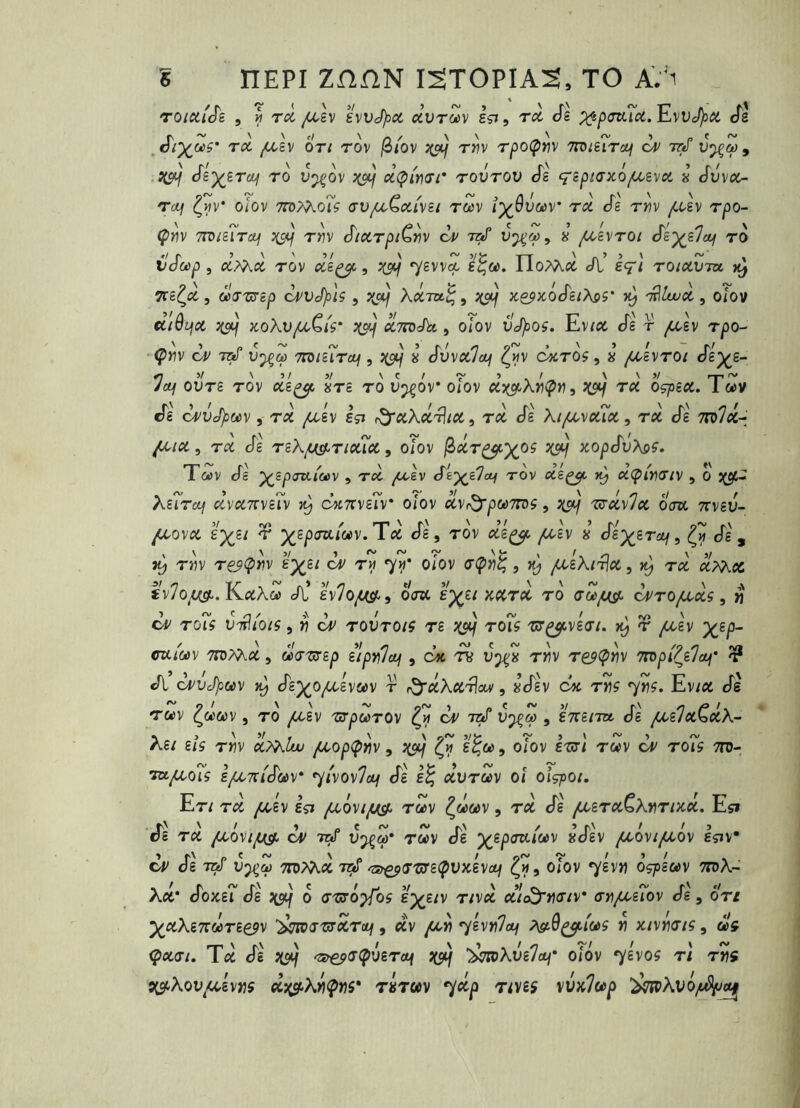 ς ΠΕΡΙ ΖΩΩΝ ΙΣΤΟΡΙΑΣ, ΤΟ Α.
τοιαίδε , ἢ τὰ μὲν ἔνυδρα αὐτῶν ἐστι, τὰ δὲ χερσαῖα. Ενυδρα δὲ
διχῶς· τὰ μὲν ὅτι τὸν βίον καὶ τὴν τροφὴν ποιεῖται ἐν τῷ ὑγρῷ,
καὶ δέχεται τὸ ὑγρὸν καὶ ἀφίησι· τούτου δὲ στερισκόμενα οὐ δύνα-
ται ζῆν· οἷον πολλοῖς συμβαίνει τῶν ἰχθύων· τὰ δὲ τὴν μὲν τρο-
φὴν ποιεῖται καὶ τὴν διατριβὴν ἐν τῷ ὑγρῷ, οὐ μέντοι δέχεται τὸ
ὕδωρ, ἀλλὰ τὸν ἀέρα, καὶ γεννᾷ ἔξω. Πολλὰ δ' ἐστὶ τοιαῦτα καὶ
πεζὰ, ὥσπερ ἐνυδρὶς, καὶ λάταξ, καὶ κροκόδειλος· καὶ πτηνὰ, οἷον
αἴθυια καὶ κολυμβίς· καὶ ἄποδα, οἷον ὕδρος. Ενια δὲ τὴν μὲν τρο-
φὴν ἐν τῷ ὑγρῷ ποιεῖται, καὶ οὐ δύναται ζῆν ἐκτὸς, οὐ μέντοι δέχε-
ται οὔτε τὸν ἀέρα οὔτε τὸ ὑγρόν· οἷον ἀκαλήφη, καὶ τὰ ὄστρεα. Τῶν
δὲ ἐνύδρων, τὰ μέν ἐστι θαλάττια, τὰ δὲ λιμναῖα, τὰ δὲ ποτά-
μια, τὰ δὲ τελματιαῖα, οἷον βάτραχος καὶ κορδύλος.
Τῶν δὲ χερσαίων, τὰ μὲν δέχεται τὸν ἀέρα καὶ ἀφίησιν, ὃ κα-
λεῖται ἀναπνεῖν καὶ ἐκπνεῖν· οἷον ἄνθρωπος, καὶ πάντα ὅσα πνεύ-
μονα ἔχει τῶν χερσαίων. Τὰ δὲ, τὸν ἀέρα μὲν οὐ δέχεται, ζῇ δὲ,
καὶ τὴν τροφὴν ἔχει ἐν τῇ γῇ· οἷον σφὴξ, καὶ μέλιττα, καὶ τὰ ἄλλα
ἔντομα. Καλῶ δ' ἔντομα, ὅσα ἔχει κατὰ τὸ σῶμα ἐντομὰς, ἢ
ἐν τοῖς ὑπτίοις, ἢ ἐν τούτοις τε καὶ τοῖς πρανέσι. καὶ τῶν μὲν χερ-
σαίων πολλὰ, ὥσπερ εἴρηται, ἐκ τοῦ ὑγροῦ τὴν τροφὴν πορίζεται· τῶν
δ' ἐνύδρων καὶ δεχομένων τὴν θάλατταν, οὐδὲν ἐκ τῆς γῆς. Ενια δὲ
τῶν ζώων, τὸ μὲν πρῶτον ζῇ ἐν τῷ ὑγρῷ, ἔπειτα δὲ μεταβάλ-
λει εἰς τὴν ἄλλην μορφὴν, καὶ ζῇ ἔξω, οἷον ἐπὶ τῶν ἐν τοῖς πο-
ταμοῖς ἐμπίδων· γίνονται δὲ ἐξ αὐτῶν οἱ οἶστροι.
Ετι τὰ μέν ἐστι μόνιμα τῶν ζώων, τὰ δὲ μεταβλητικά. Εστι
δὲ τὰ μόνιμα ἐν τῷ ὑγρῷ· τῶν δὲ χερσαίων οὐδὲν μόνιμόν ἐστιν·
ἐν δὲ τῷ ὑγρῷ πολλὰ τῷ προσπεφυκέναι ζῇ, οἷον γένη ὀστρέων πολ-
λά· δοκεῖ δὲ καὶ ὁ σπόγγος ἔχειν τινὰ αἴσθησιν· σημεῖον δὲ, ὅτι
χαλεπώτερον ἀποσπᾶται, ἂν μὴ γένηται λαθραίως ἡ κίνησις, ὥς
φασι. Τὰ δὲ καὶ προσφύεται καὶ ἀπολύεται· οἷόν γένος τι τῆς
καλουμένης ἀκαλήφης· τούτων γάρ τινες νύκτωρ ἀπολυόμεναι